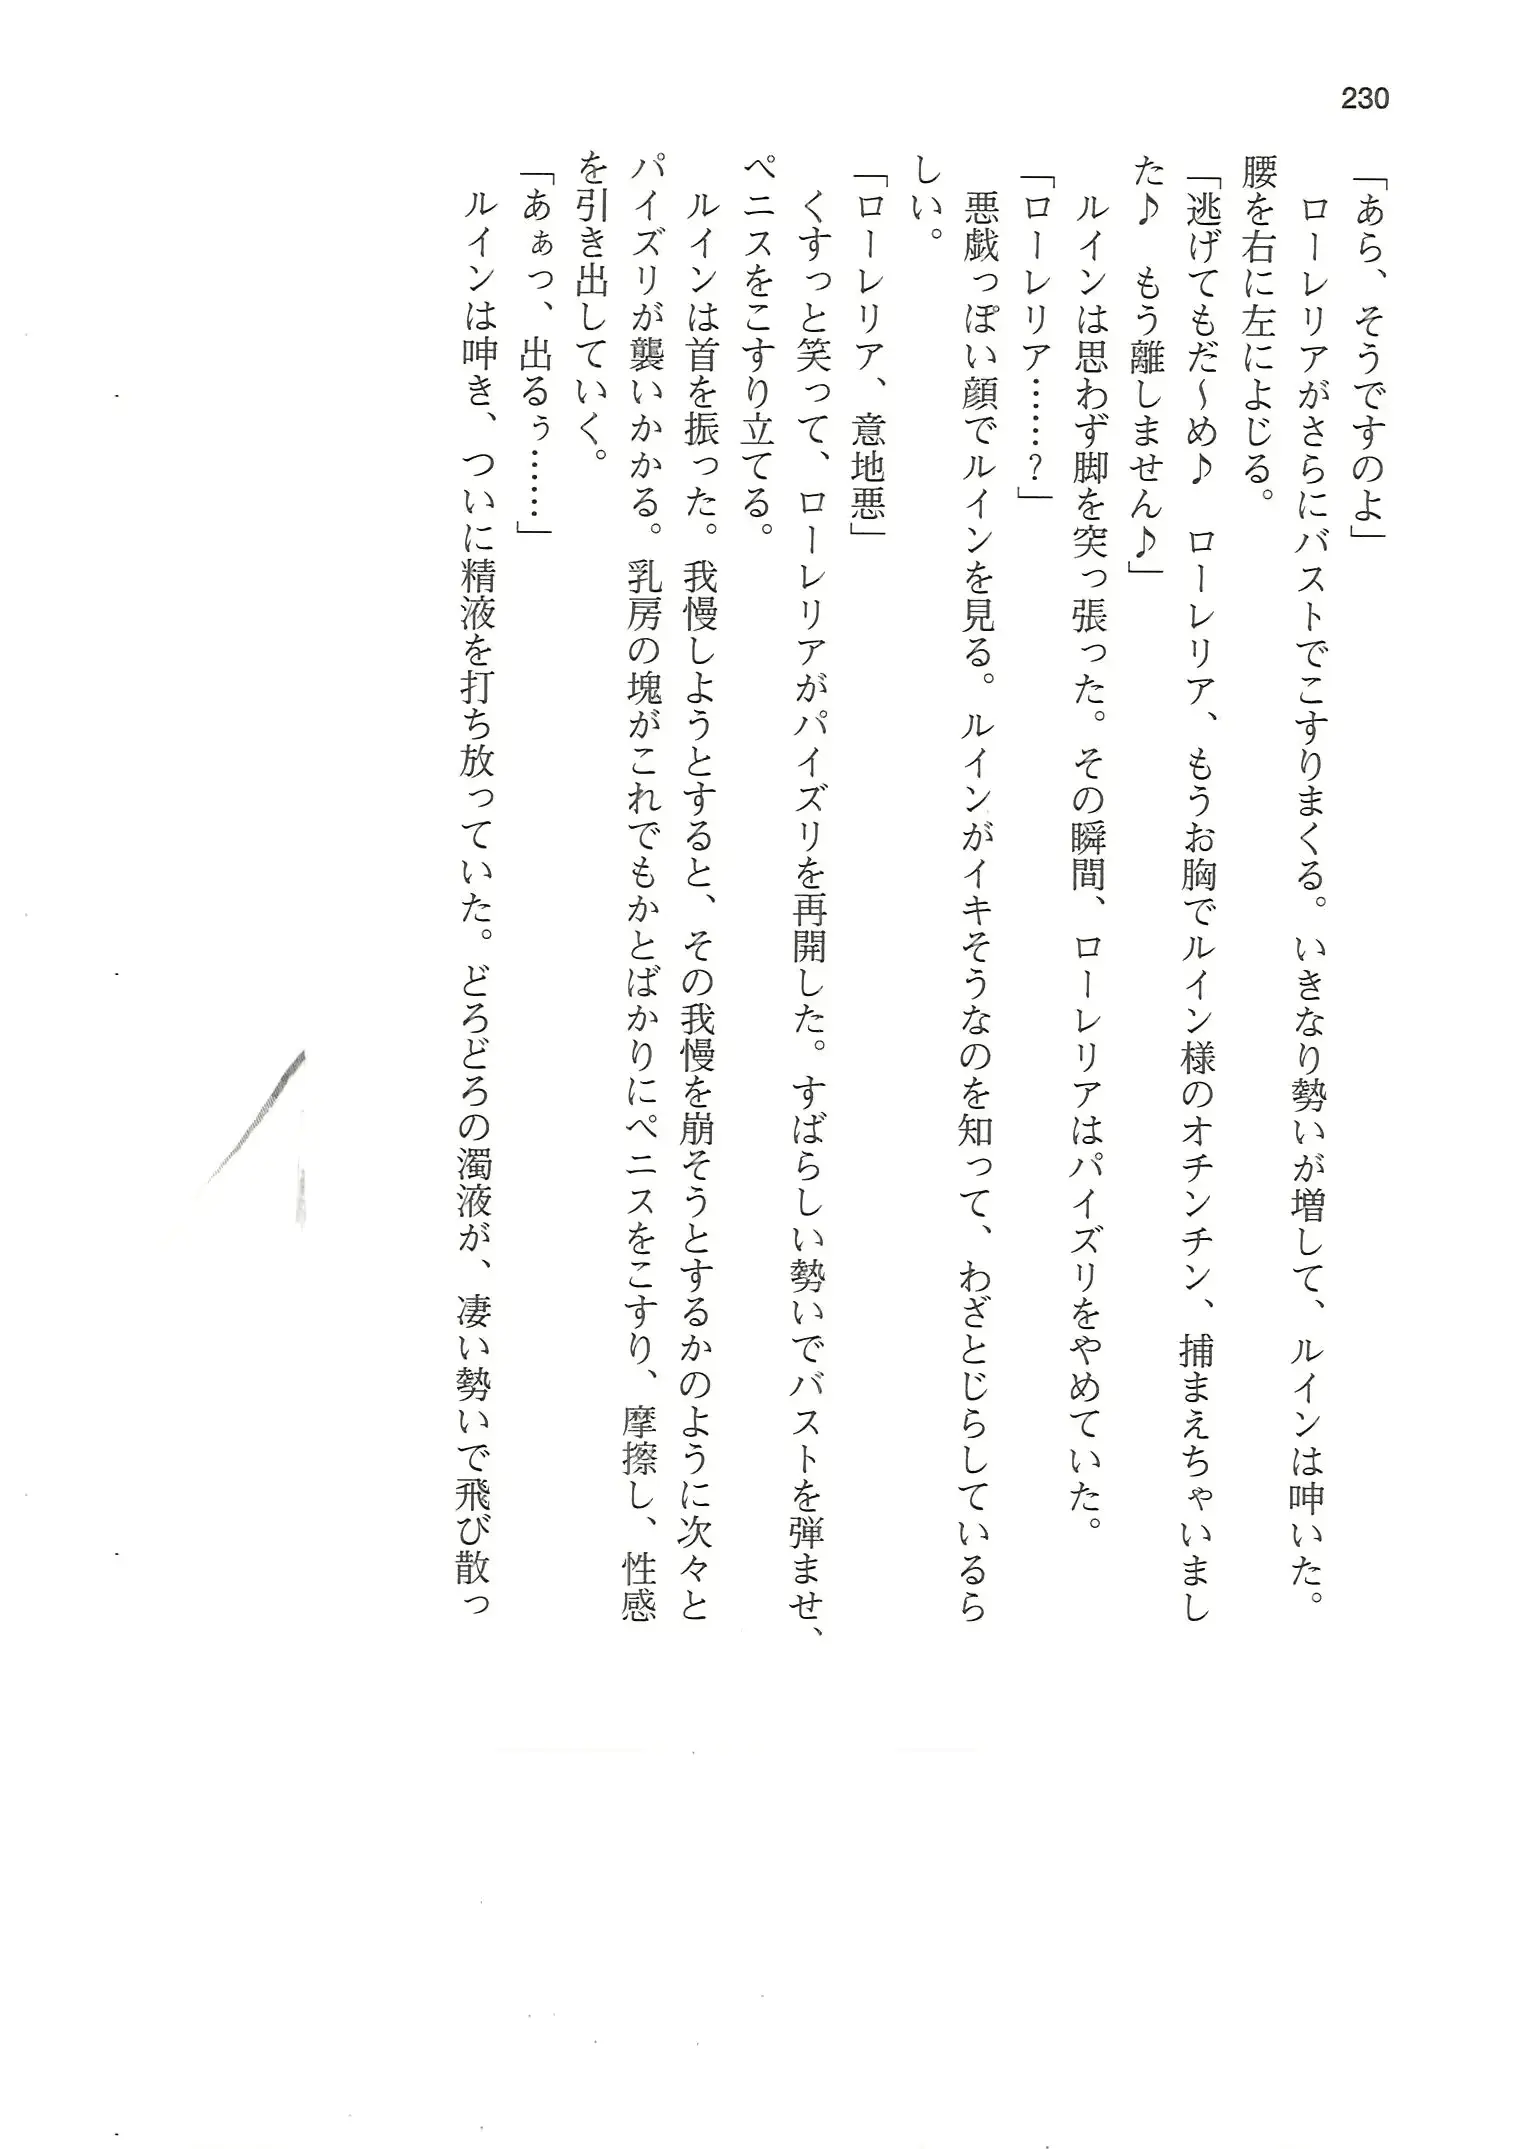 230
「あら、そうですのよ」
　ローレリアがさらにバストでこすりまくる。いきなり勢いが増して、ルインは呻いた。
腰を右に左によじる。
「逃げてもだ～め♪　ローレリア、もうお胸でルイン様のオチンチン、捕まえちゃいまし
た♪　もう離しません♪」
　ルインは思わず脚を突っ張った。その瞬間、ローレリアはパイズリをやめていた。
「ローレリア……？」
　悪戯っぽい顔でルインを見る。ルインがイキそうなのを知って、わざとじらしているら
しい。
「ローレリア、意地悪」
　くすっと笑って、ローレリアがパイズリを再開した。すばらしい勢いでバストを弾ませ、
ペニスをこすり立てる。
　ルインは首を振った。我慢しようとすると、その我慢を崩そうとするかのように次々と
パイズリが襲いかかる。乳房の塊がこれでもかとばかりにペニスをこすり、摩擦し、性感
を引き出していく。
「あぁっ、出るぅ……」
　ルインは呻き、ついに精液を打ち放っていた。どろどろの濁液が、凄い勢いで飛び散っ